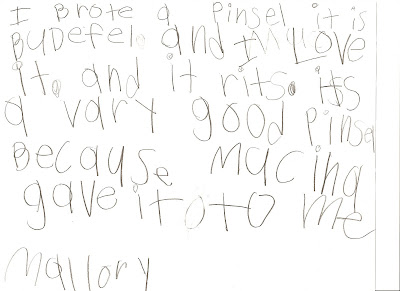 I Brote a Pinsel it is
BUDefel. and I LOVE
it. and it rits. its
a vary good Pinsel
Because Macing
gave it to me
Mallory